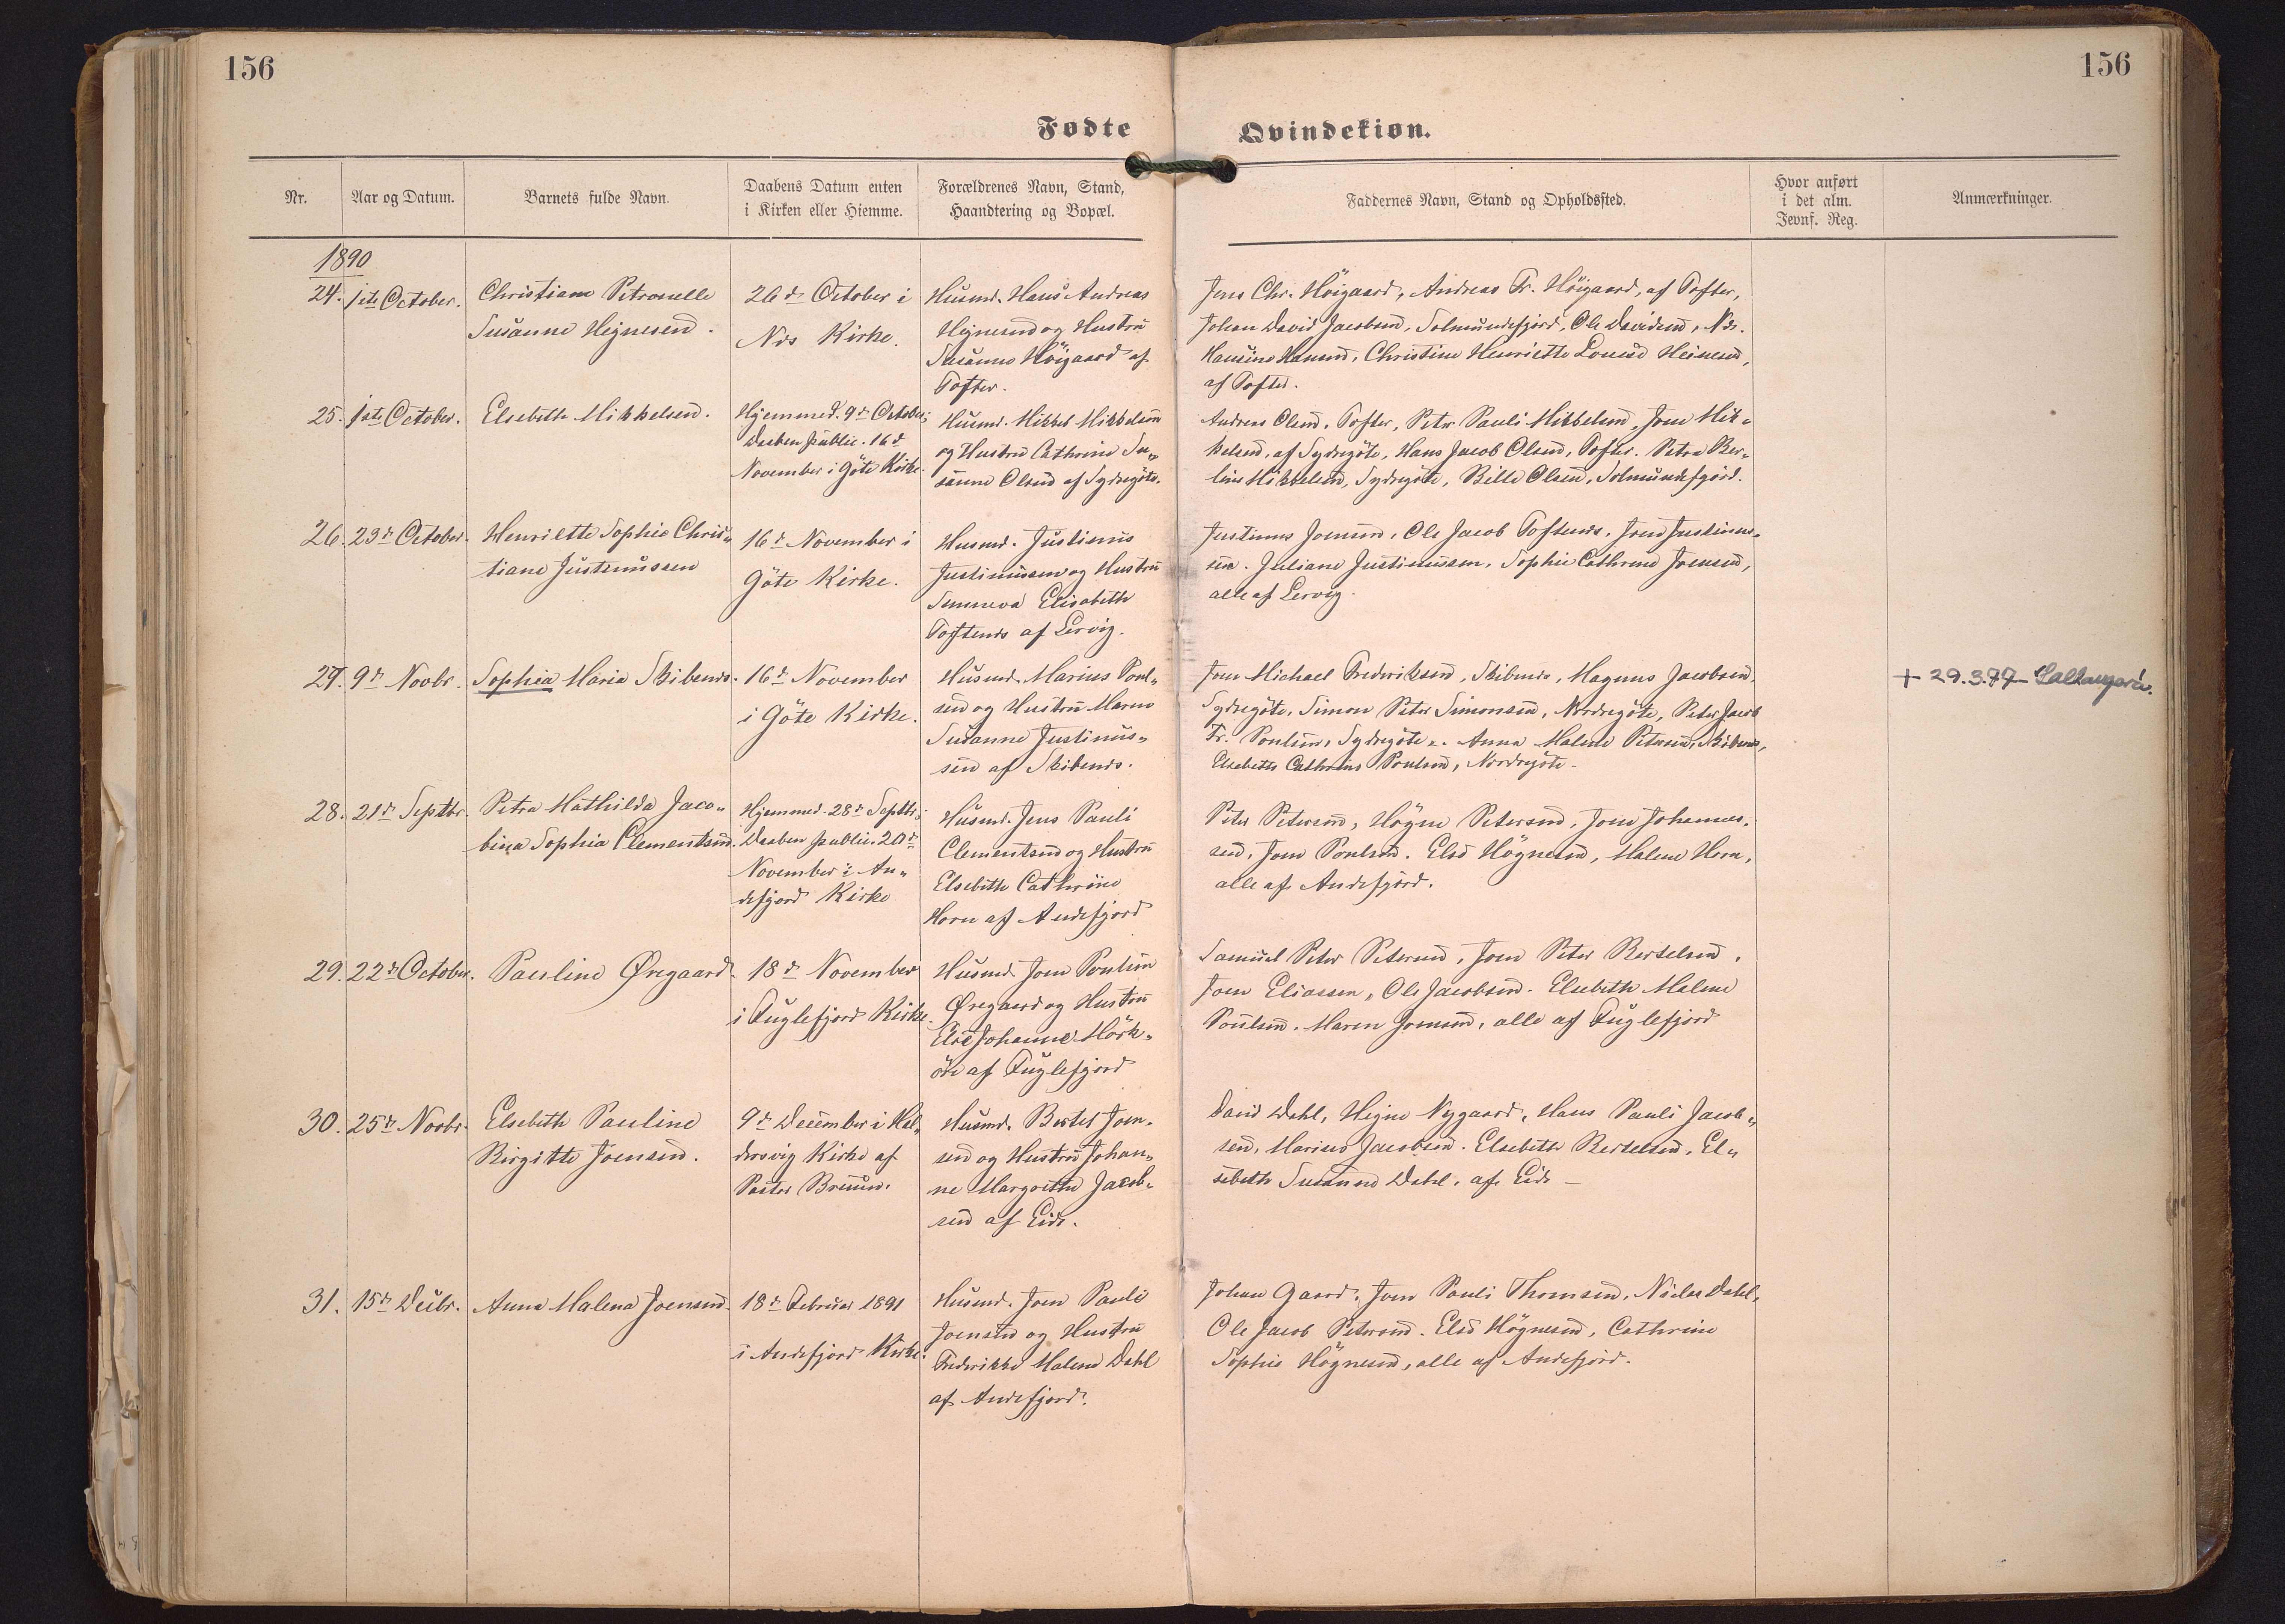 156
156
Fødte
Qvindekiøn.
Nr.
Aar og Datum.
Barnets fulde Navn.
Daabens Datum enten
i Kirken eller Hiemme.
Forældrenes Navn, Stand,
Haandtering og Bopæl.
Faddernes Navn, Stand og Opholdssted.
Hvor anført
i det alm.
Jevnf. Reg.
Anmærkninger.
1890
24. 1ste October.
Christiane Petronelle
Susanne Hejnesen.
26de October i
Nes Kirke.
Husmd. Hans Andreas
Hejnesen og Hustru
Susanne Höigaard af
Tofter.
Jens Chr. Höigaard, Andreas Fr. Höigaard, af Tofter,
Johan David Jacobsen, Solmundefjord, Ole Davidsen, Nes.
Hansine Hansen, Christine Henriette Louise Heinesen,
af Tofter.
25. 1ste October.
Elsebeth Mikkelsen.
Hjemmed. 9de October;
Daaben public. 16de
November i Göte Kirke.
Husmd. Mikkel Mikkelsen
og Hustru Cathrine Su„
sanne Olsen af Sydregöte.
Andreas Olsen, Tofter, Peter Pauli Mikkelsen, Joen Mik„
kelsen, af Sydregöte, Hans Jacob Olsen, Tofter. Petra Ber„
line Mikkelsen, Sydregöte, Bille Olsen, Solmundefjord.
26. 23de October.
Henriette Sophie Chris„
tiane Justinussen
16de November i
Göte Kirke.
Husmd. Justinus
Justinussen og Hustru
Sunneva Elisabeth
Toftenes af Lervig.
Justinus Joensen, Ole Jacob Toftenes, Joen Justinus„
sen. Juliane Justinussen, Sophie Cathrine Joensen,
alle af Lervig.
27. 9de Novbr.
Sophia Maria Skibenes.
16de November
i Göte Kirke.
Husmd. Marius Poul„
sen og Hustru Maren
Susanne Justinus„
sen af Skibenes.
Joen Michael Fredriksen, Skibenes, Magnus Jacobsen,
Sydregöte, Simon Peter Simonsen, Nordregöte, Peter Jacob
Fr. Poulsen, Sydregöte. Anna Malene Petersen, Skibenes,
Elsebeth Cathrine Poulsen, Nordregöte.
+ 29.3.77 - Saltangará.
28. 21de Septbr.
Petra Mathilda Jaco„
bina Sophia Clementsen.
Hjemmed. 28de Septbr;
Daaben public. 20de
November i An„
defjord Kirke
Husmd. Jens Pauli
Clementsen og Hustru
Elsebeth Cathrine
Horn af Andefjord
Peter Petersen, Högne Petersen, Joen Johannes„
sen, Joen Poulsen. Else Högnesen, Malene Horn,
alle af Andefjord.
29. 22de October.
Pauline Øregaard.
18de November
i Fuglefjord Kirke.
Husmd. Joen Poulsen
Øregaard og Hustru
Else Johanne Mörk„
öre af Fuglefjord
Samuel Peter Petersen, Joen Peter Bertelsen,
Joen Eliassen, Ole Jacobsen. Elsebeth Malene
Poulsen. Maren Joensen, alle af Fuglefjord
30. 25de Novbr.
Elsebeth Pauline
Birgitte Joensen.
9de December i Hal„
dorsvig Kirke af
Pastor Bruun.
Husmd. Bertel Joen„
sen og Hustru Johan„
ne Margrethe Jacob„
sen af Eide.
David Dahl, Hejne Nygaard, Hans Pauli Jacob„
sen, Marius Jacobsen. Elsebeth Bertelsen, El„
sebeth Susanne Dahl, af Eide
31. 15de Decbr.
Anna Malena Joensen.
18de Februar 1891
i Andefjord Kirke.
Husmd. Joen Pauli
Joensen og Hustru
Frederikke Malene Dahl
af Andefjord.
Johan Gaard, Joen Pauli Thomsen, Niclas Dahl,
Ole Jacob Petersen. Else Högnesen, Cathrine
Sophie Högnesen, alle af Andefjord.